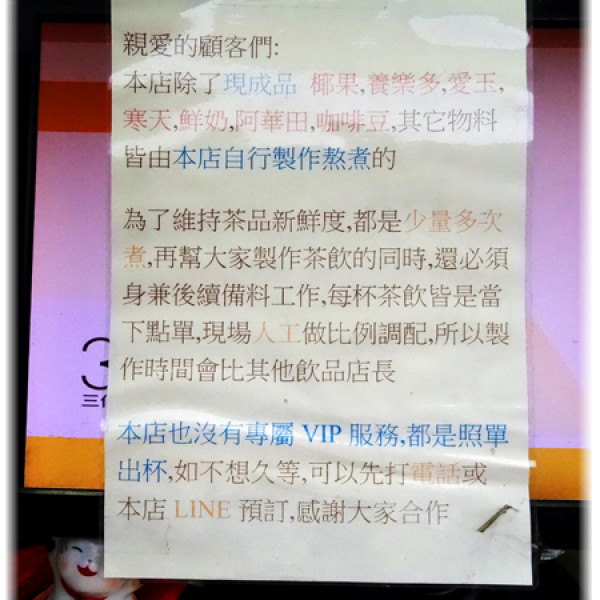 親愛的顧客們:
本店除了現成品 椰果,養樂多,愛玉,
寒天,鮮奶,阿華田,咖啡豆,其它物料
皆由本店自行製作熬煮的
為了維持茶品新鮮度,都是少量多次
煮,再幫大家製作茶飲的同時,還必須
身兼後續備料工作,每杯茶飲皆是當
下點單,現場人工做比例調配,所以製
作時間會比其他飲品店長
本店也沒有專屬 VIP 服務,都是照單
出杯,如不想久等,可以先打電話或
本店 LINE 預訂,感謝大家合作